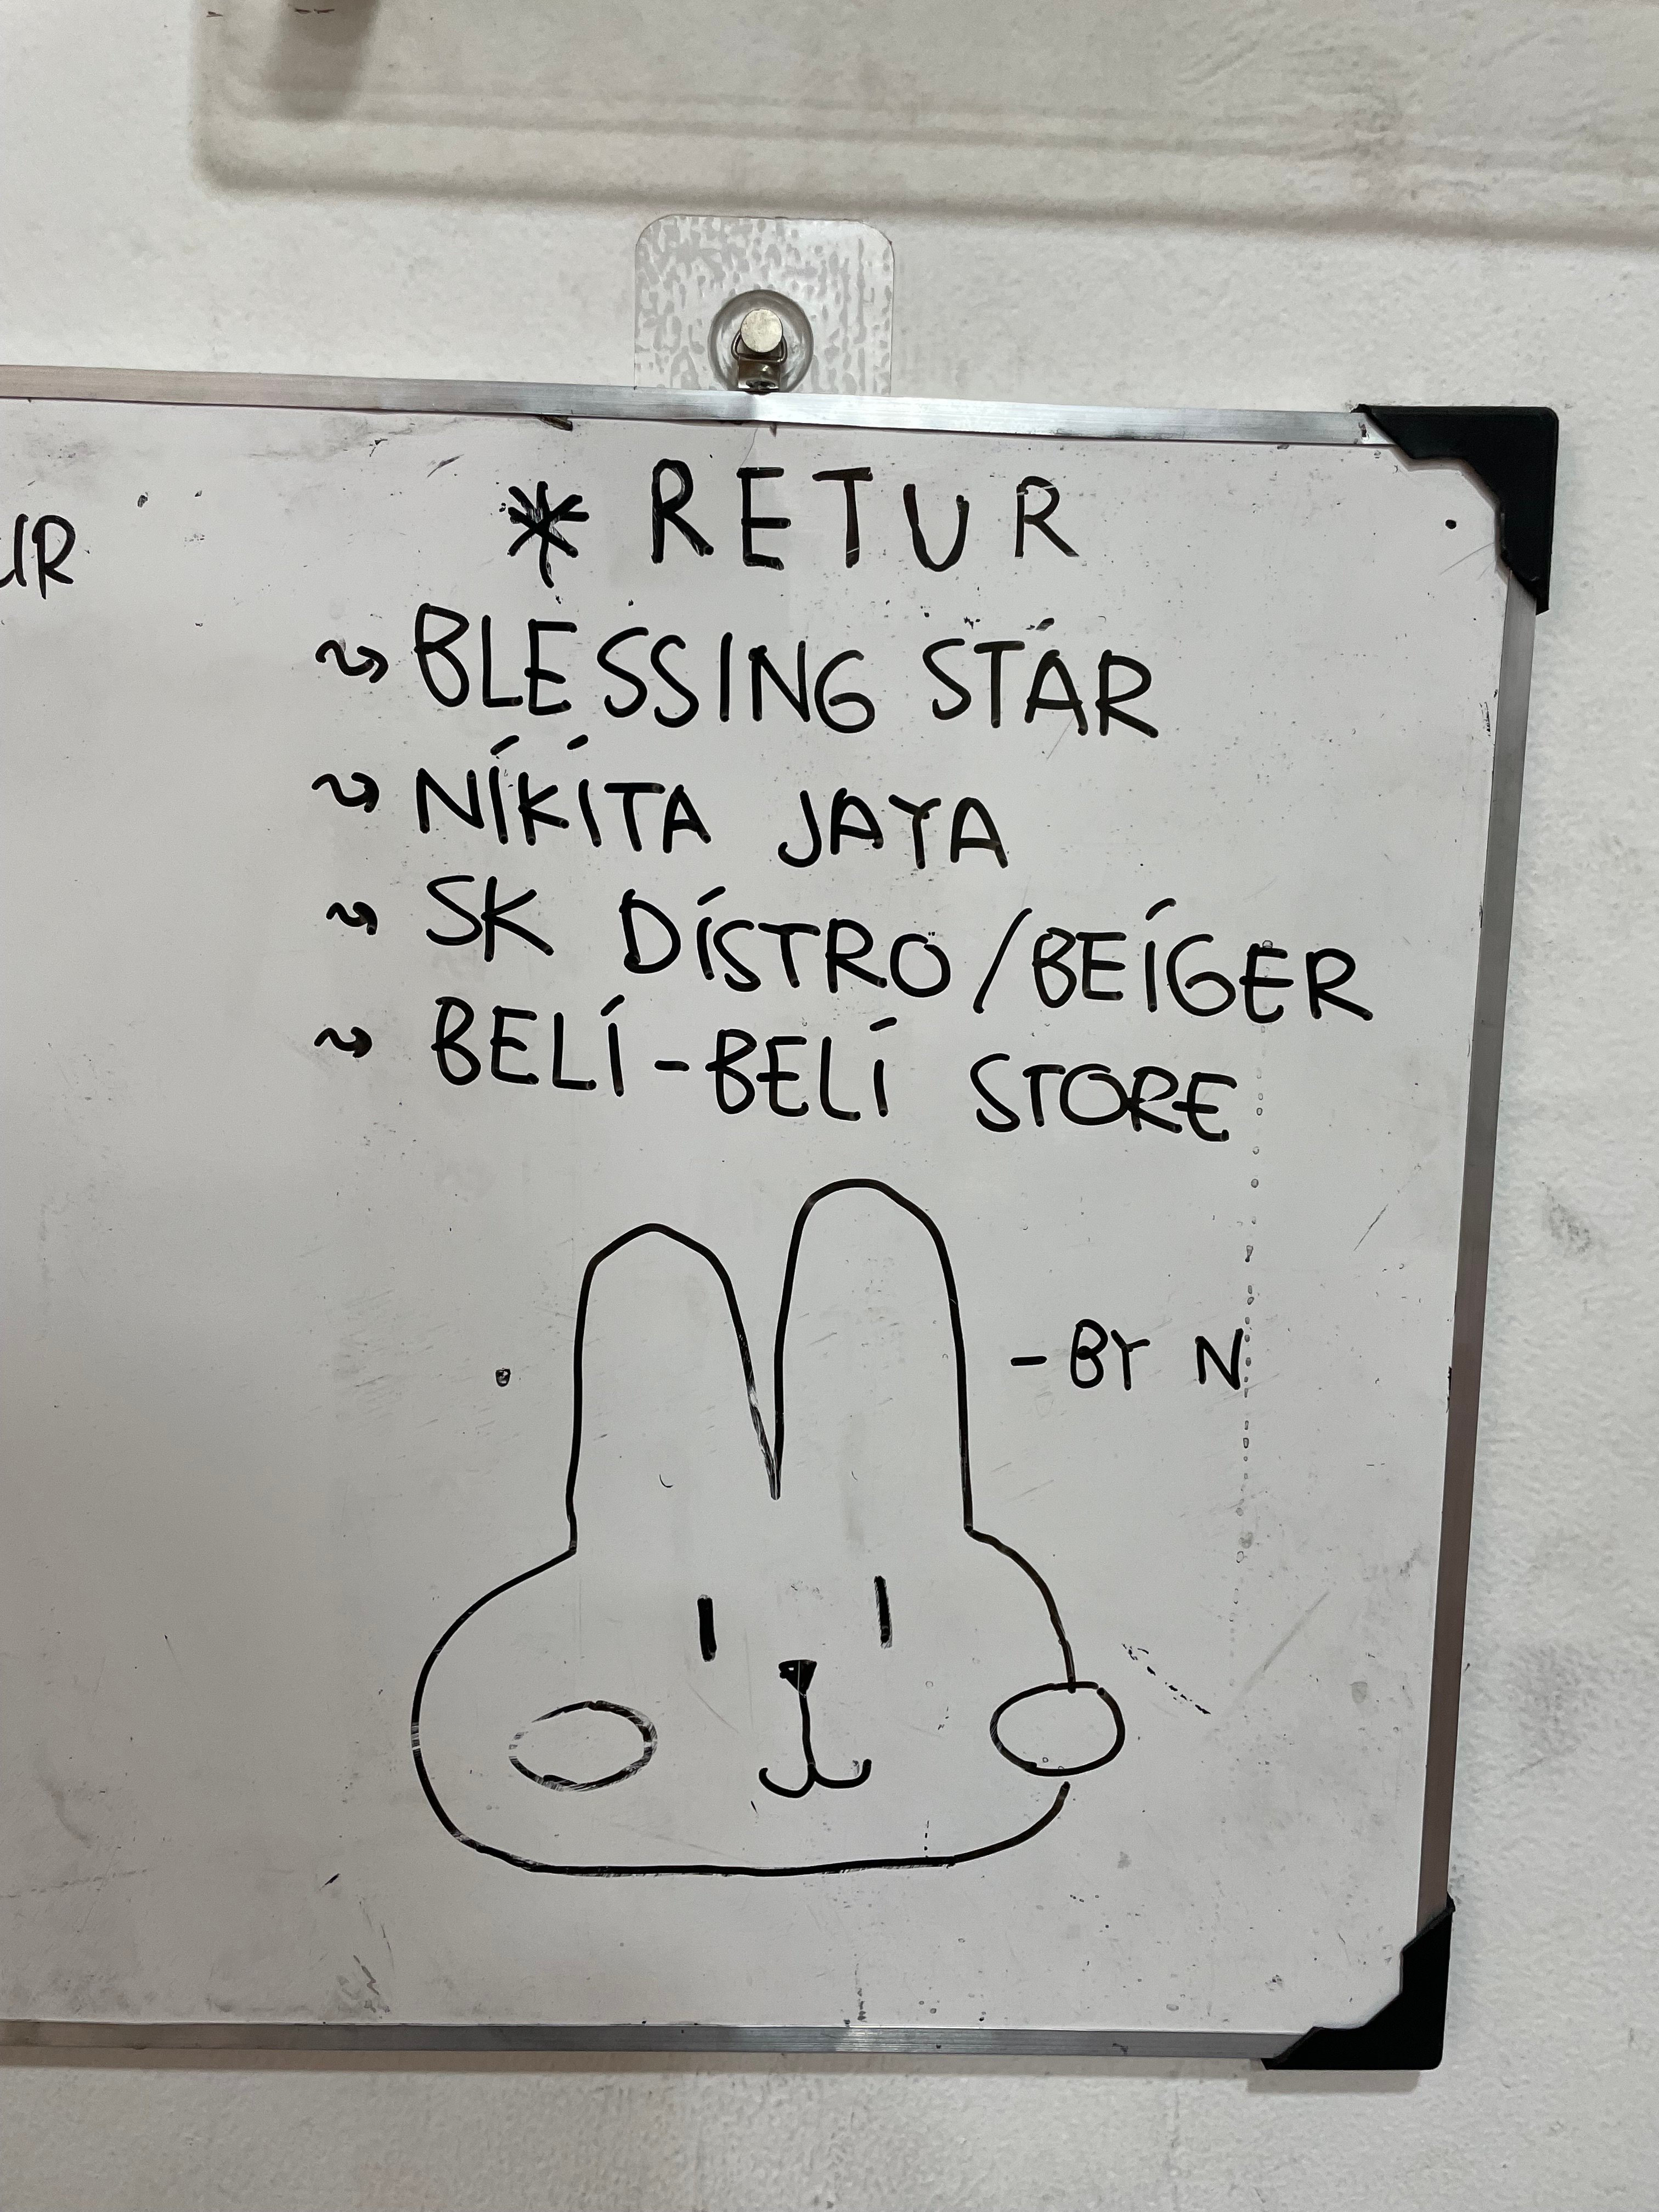 UR
* RETUR
↝ BLESSING STAR
↝ NIKITA JAYA
↝ SK DISTRO/BEIGER
↝ BELI-BELI STORE
- BY N